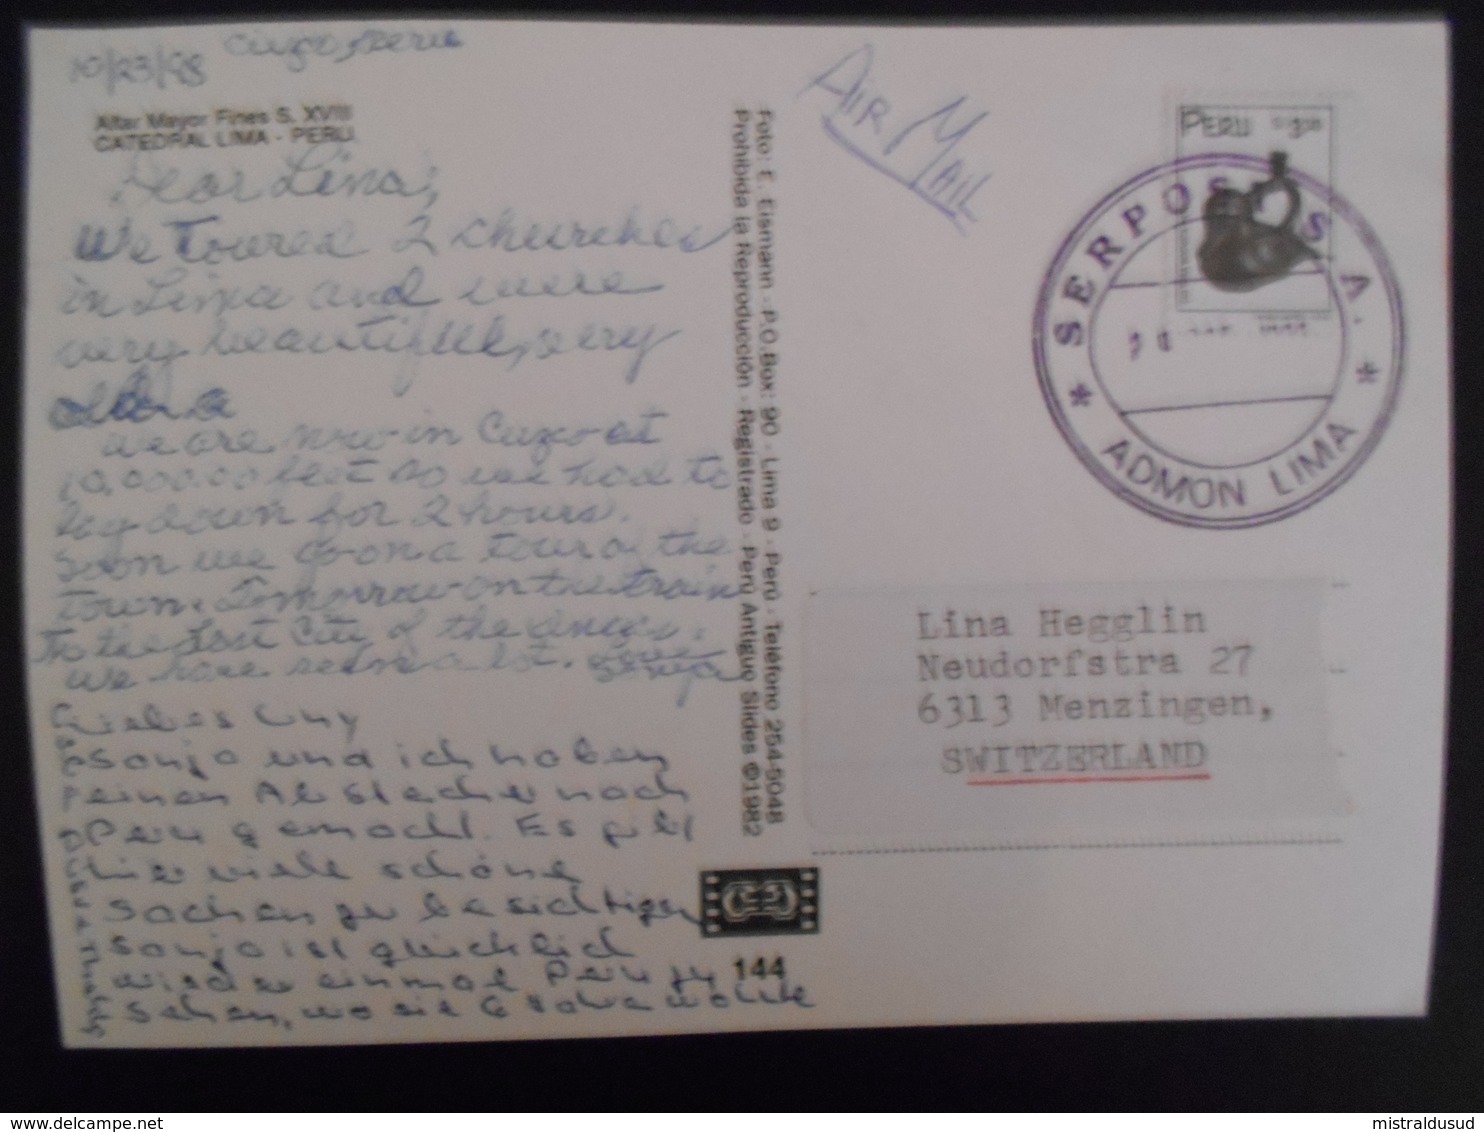 10/23/98 Cuzco, Peru
Altar Mayor Fines S. XVIII
CATEDRAL LIMA - PERU.
Dear Lina,
We toured 2 churches
in Lima and were
very beautiful, very
we are now in Cuzco at
10,000.00 feet so we had to
lay down for 2 hours.
Soon we go on a tour of the
town. Tomorrow on the train
to the Lost City of the Incas.
we have seen a lot. Love
Sonja
Liebes Liny
Sonja und ich haben
einen Abstecher nach
Peru gemacht. Es gibt
hier viele schöne
Sachen zu besichtigen
Sonja ist glücklich
wieder einmal Peru zu
sehen, wo sie 6 Jahre wohnte
Foto: E. Eismann - P.O.Box: 90 - Lima 9 - Perú - Teléfono 254-5048
Prohibida la Reproducción - Registrado - Perú Antiguo Slides ©1982
144
AIR MAIL
PERU
SERPOST S.A.
ADMON LIMA
Lina Hegglin
Neudorfstra 27
6313 Menzingen,
SWITZERLAND
delcampe.net
mistraldusud